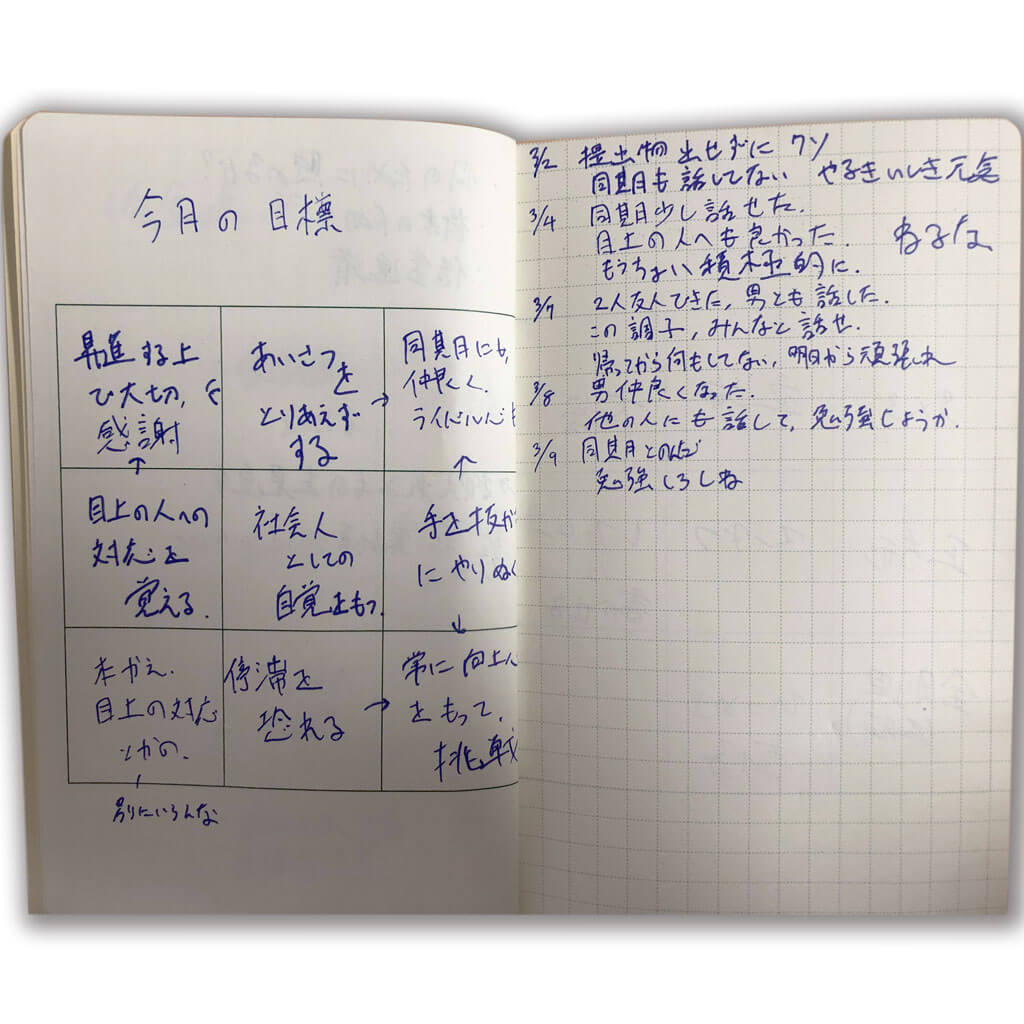 今月の目標
昇進する上
で大切、
感謝
あいさつを
とりあえず
する
同期にも、
仲良く、
ライバル
目上の人への
対応を
覚える。
社会人
としての
自覚をもつ。
手を抜か
にやりぬく
本かえ。
目上の対応
とかの、
別にいろんな
停滞を
恐れる
常に向上心
をもって、
挑戦
3/2 提出物出せずにクソ
同期も話してない やるきいしき元気
3/4 同期少し話せた。
目上の人へも良かった。 ねるな
もうちょい積極的に。
3/7 2人友人できた、男とも話した。
この調子、みんなと話せ。
帰ってから何もしてない、明日から頑張れ
3/8 男仲良くなった。
他の人にも話して、勉強しようか。
3/9 同期とのんだ
勉強しろしね